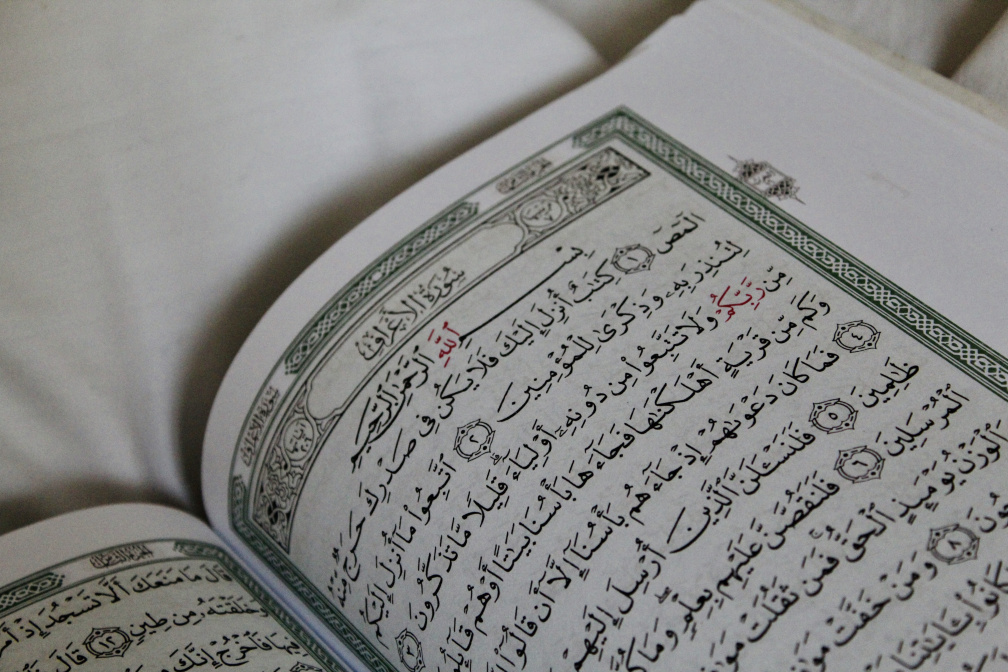 سُورَةُ الْأَعْرَافِ
بِسْمِ ٱللَّهِ ٱلرَّحْمَٰنِ ٱلرَّحِيمِ
الٓمٓصٓ ١ كِتَٰبٌ أُنزِلَ إِلَيْكَ فَلَا يَكُن فِى صَدْرِكَ حَرَجٌ مِّنْهُ
لِتُنذِرَ بِهِۦ وَذِكْرَىٰ لِلْمُؤْمِنِينَ ٢ ٱتَّبِعُوا۟ مَآ أُنزِلَ إِلَيْكُم
مِّن رَّبِّكُمْ وَلَا تَتَّبِعُوا۟ مِن دُونِهِۦٓ أَوْلِيَآءَ ۗ قَلِيلًا مَّا تَذَكَّرُونَ ٣
وَكَم مِّن قَرْيَةٍ أَهْلَكْنَٰهَا فَجَآءَهَا بَأْسُنَا بَيَٰتًا أَوْ هُمْ قَآئِلُونَ
٤ فَمَا كَانَ دَعْوَىٰهُمْ إِذْ جَآءَهُم بَأْسُنَآ إِلَّآ أَن قَالُوٓا۟
ظَٰلِمِينَ ٥ فَلَنَسْـَٔلَنَّ ٱلَّذِينَ أُرْسِلَ إِلَيْهِمْ
ٱلْمُرْسَلِينَ ٦ فَلَنَقُصَّنَّ عَلَيْهِم بِعِلْمٍ ۖ وَمَا
وَٱلْوَزْنُ يَوْمَئِذٍ ٱلْحَقُّ ۚ فَمَن ثَقُلَتْ
٨ وَمَنْ خَفَّتْ
كَانُوا۟ بِـَٔايَٰتِنَا
قَالَ مَا مَنَعَكَ أَلَّا تَسْجُدَ إِذْ
خَلَقْتَهُۥ مِن طِينٍ ١٢ قَالَ
فَٱخْرُجْ إِنَّكَ